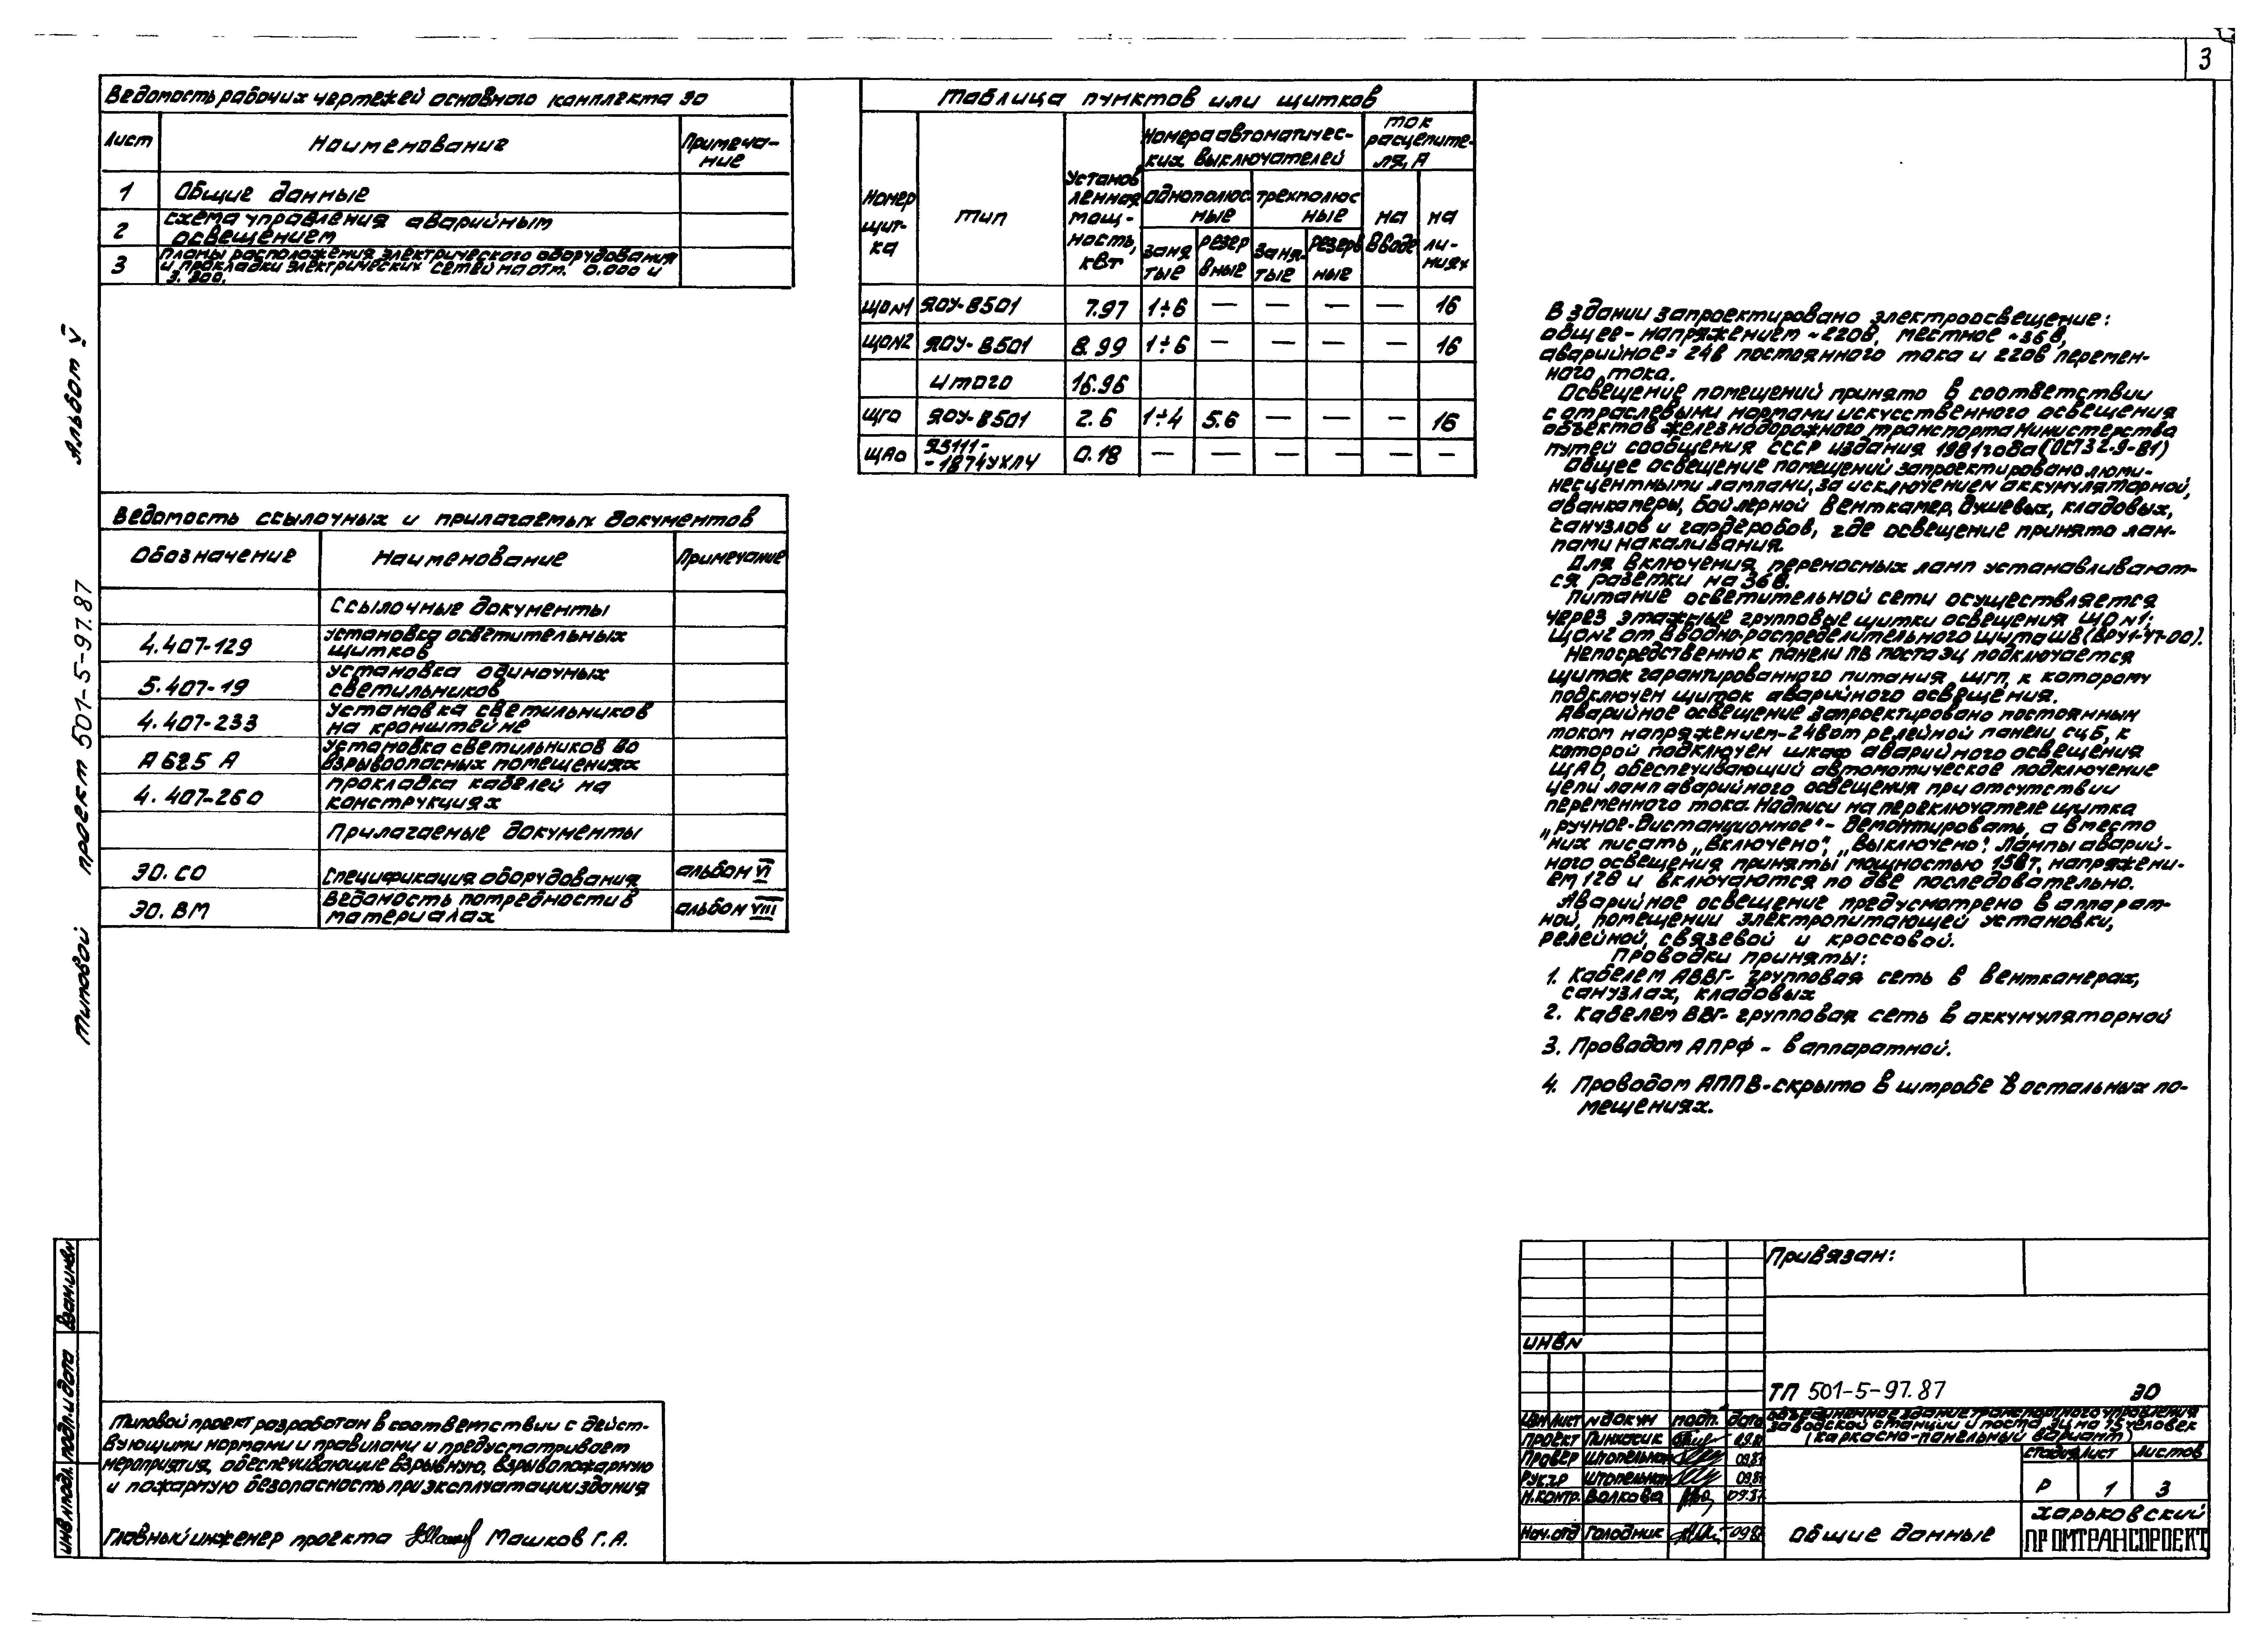 3
Ведомость рабочих чертежей основного комплекта ЭО
Лист Наименование Примеча-
ние
1 Общие данные
2 Схема управления аварийным
освещением
3 Планы расположения электрического оборудования
и прокладки электрических сетей на отм. 0.000 и
3.300.
Ведомость ссылочных и прилагаемых документов
Обозначение Наименование Примечание
Ссылочные документы
4.407-129 Установка осветительных
щитков
5.407-19 Установка одиночных
светильников
4.407-233 Установка светильников
на кронштейне
А625А Установка светильников во
взрывоопасных помещениях
4.407-260 Прокладка кабелей на
конструкциях
Прилагаемые документы
ЭО.СО Спецификация оборудования альбом VI
ЭО.ВМ Ведомость потребности в
материалах альбом VIII
Таблица пунктов или щитков
Номер
щит-
ка
Тип
Установ
ленная
мощ-
ность,
квт
Номера автоматичес-
ких выключателей
однополюс
ные
трехполюс
ные
заня
тые
резер
вные
заня-
тые
резерв
ные
Ток
расцепите-
ля, А
на
вводе
на
ли-
ниях
ЩОN1 ЯОУ-8501 7.97 1÷6 — — — — 16
ЩОN2 ЯОУ-8501 8.99 1÷6 — — — — 16
Итого 16.96
ЩГО ЯОУ-8501 2.6 1÷4 5.6 — — — 16
ЩАО Я5111-
-1874УХЛ4 0.18 — — — — — —
В здании запроектировано электроосвещение:
общее - напряжением ~220в, местное ~36в,
аварийное= 24в постоянного тока и 220в перемен-
ного тока.
Освещение помещений принято в соответствии
с отраслевыми нормами искусственного освещения
объектов железнодорожного транспорта Министерства
путей сообщения СССР издания 1981года (ОСТ32-9-81)
Общее освещение помещений запроектировано люми-
несцентными лампами, за исключением аккумуляторной,
аванкамеры, бойлерной венткамер, душевых, кладовых,
санузлов и гардеробов, где освещение принято лам-
пами накаливания.
Для включения переносных ламп устанавливают-
ся розетки на 36в.
Питание осветительной сети осуществляется
через этажные групповые щитки освещения ЩОN1;
ЩОN2 от вводно-распределительного щита ШВ (ВРУ1-УТ-00).
Непосредственно к панели ПВ поста ЭЦ подключается
щиток гарантированного питания ЩГП, к которому
подключен щиток аварийного освещения.
Аварийное освещение запроектировано постоянным
током напряжением-24в от релейной панели СЦБ, к
которой подключен шкаф аварийного освещения
ЩАО, обеспечивающий автоматическое подключение
цепи ламп аварийного освещения при отсутствии
переменного тока. Надписи на переключателе щитка
„ручное-дистанционное"- демонтировать, а вместо
них писать „включено", „выключено". Лампы аварий-
ного освещения приняты мощностью 15Вт, напряжени-
ем 12в и включаются по две последовательно.
Аварийное освещение предусмотрено в аппарат-
ной, помещении электропитающей установки,
релейной, связевой и кроссовой.
Проводки приняты:
1. Кабелем АВВГ- групповая сеть в венткамерах,
санузлах, кладовых
2. Кабелем ВВГ- групповая сеть в аккумуляторной
3. Проводом АПРФ - в аппаратной.
4. Проводом АППВ-скрыто в штробе в остальных по-
мещениях.
Типовой проект 501-5-97.87 Альбом V
Инв.N подл. Подп. и дата Взам.инвN
Типовой проект разработан в соответствии с дейст-
вующими нормами и правилами и предусматривает
мероприятия, обеспечивающие взрывную, взрывопожарную
и пожарную безопасность при эксплуатации здания
Главный инженер проекта Машков Г.А.
Привязан:
ИНВN
ТП 501-5-97.87 ЭО
Изм Лист N докум подп. дата
Проект Пинхасик 09.87
Провер Штопельман 09.87
Рук.гр Штопельман 09.87
Н.контр. Волкова 09.87
Нач.отд Голодник 09.87
Объединенное здание транспортного управления
заводской станции и поста ЭЦ на 75 человек
(каркасно-панельный вариант)
Стадия Лист Листов
Р 1 3
Общие данные
Харьковский
ПРОМТРАНСПРОЕКТ